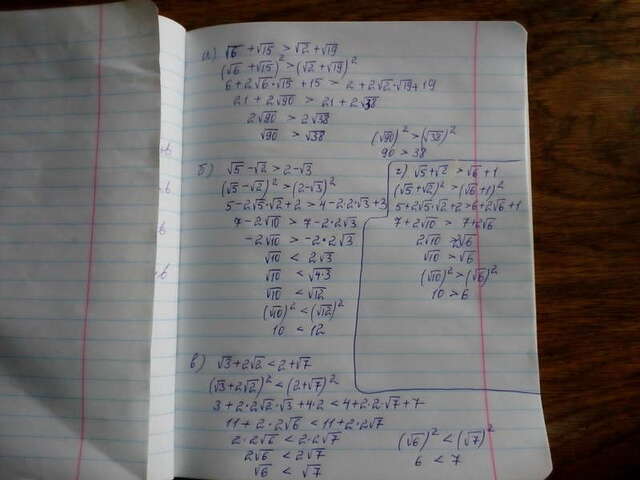 а) √6 + √15 > √2 + √19
(√6 + √15)² > (√2 + √19)²
6 + 2√6·√15 + 15 > 2 + 2√2·√19 + 19
21 + 2√90 > 21 + 2√38
2√90 > 2√38
√90 > √38
(√90)² > (√38)²
90 > 38
б) √5 - √2 > 2 - √3
(√5 - √2)² > (2 - √3)²
5 - 2√5·√2 + 2 > 4 - 2·2·√3 + 3
7 - 2√10 > 7 - 2·2√3
-2√10 > -2·2√3
√10 < 2√3
√10 < √4·3
√10 < √12
(√10)² < (√12)²
10 < 12
г) √5 + √2 > √6 + 1
(√5 + √2)² > (√6 + 1)²
5 + 2√5·√2 + 2 > 6 + 2√6 + 1
7 + 2√10 > 7 + 2√6
2√10 > 2√6
√10 > √6
(√10)² > (√6)²
10 > 6
в) √3 + 2√2 < 2 + √7
(√3 + 2√2)² < (2 + √7)²
3 + 2·2√2·√3 + 4·2 < 4 + 2·2√7 + 7
11 + 2·2√6 < 11 + 2·2√7
2·2√6 < 2·2√7
2√6 < 2√7
√6 < √7
(√6)² < (√7)²
6 < 7